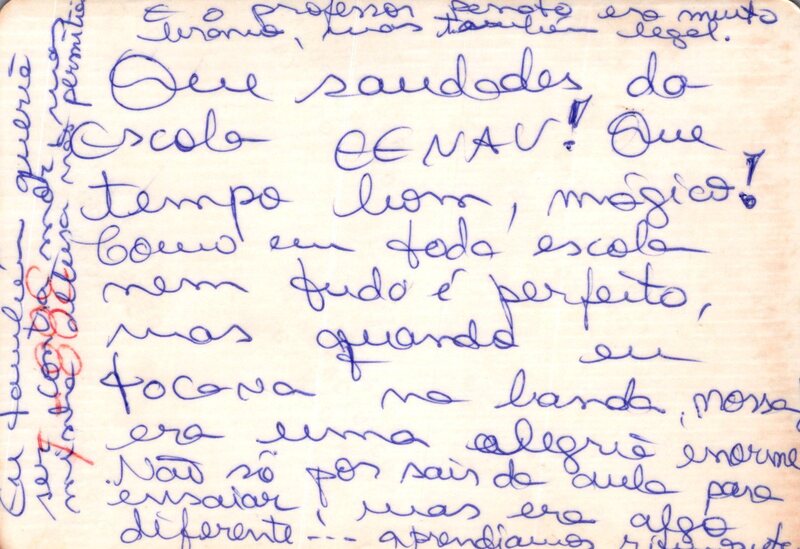 E o professor Renato era muito
tirano, mas também legal.
Que saudades da
escola EENAV! Que
tempo bom, mágico!
Como em toda escola
nem tudo é perfeito,
mas quando eu
tocava na banda, nossa
era uma alegria enorme
Não só por sair da aula para
ensaiar, mas era algo
diferente!... aprendíamos
Eu também queria
ser contra mor, mas
minha altura não permitia